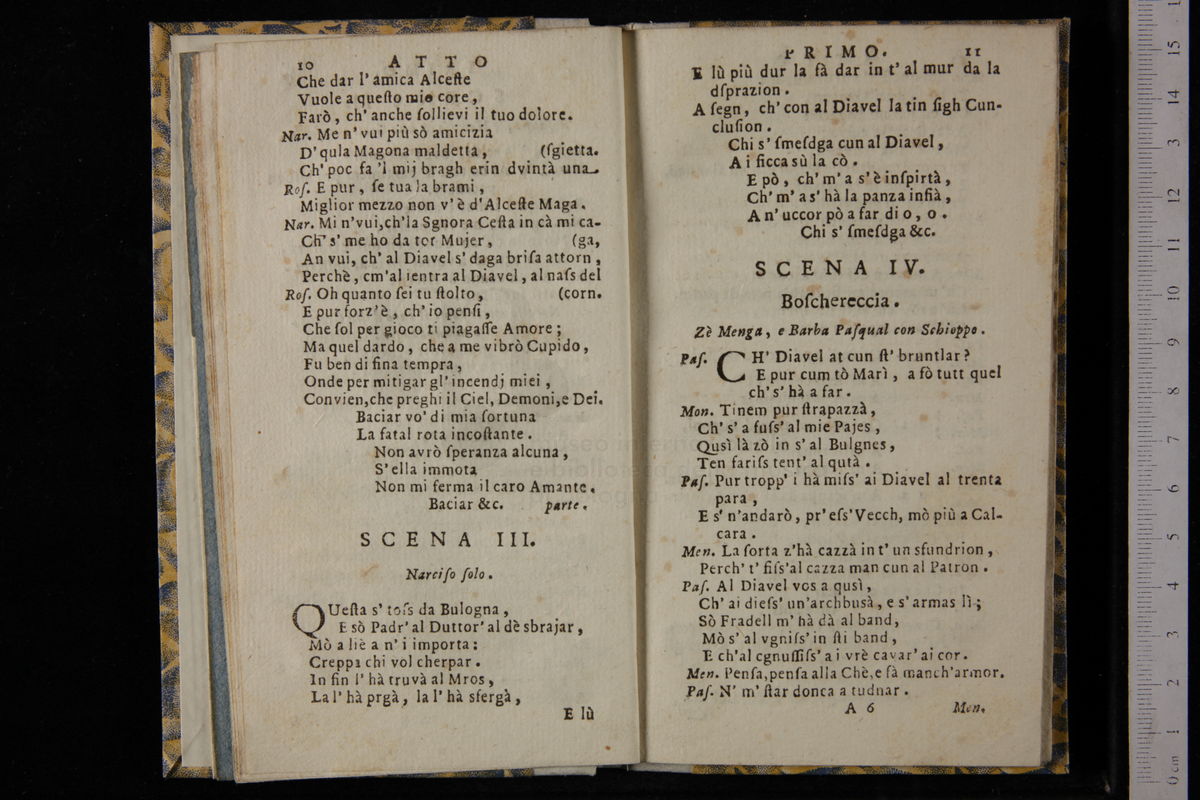 10 ATTO
Che dar l' amica Alceſte
Vuole a queſto mio core,
Farò, ch' anche ſollievi il tuo dolore.
Nar. Me n' vui più sò amicizia
D' qula Magona maldetta, (ſgietta.
Ch' poc fa 'l mij bragh erin dvintà una
Roſ. E pur, ſe tua la brami,
Miglior mezzo non v' è d' Alceſte Maga.
Nar. Mi n' vui,ch'la Sgnora Ceſta in cà mi ca-
Ch' s' me ho da tor Mujer, (ga,
An vui, ch' al Diavel s' daga briſa attorn,
Perchè, cm'al ientra al Diavel, al naſs del
Roſ. Oh quanto ſei tu ſtolto, (corn.
E pur forz' è, ch' io penſi,
Che ſol per gioco ti piagaſſe Amore;
Ma quel dardo, che a me vibrò Cupido,
Fu ben di fina tempra,
Onde per mitigar gl' incendj miei,
Convien,che preghi il Ciel, Demoni,e Dei.
Baciar vo' di mia fortuna
La fatal rota incoſtante.
Non avrò ſperanza alcuna,
S' ella immota
Non mi ferma il caro Amante.
Baciar &c. parte.
SCENA III.
Narciſo ſolo.
QUeſta s' toſs da Bulogna,
E sò Padr' al Duttor' al dè sbrajar,
Mò a liè a n' i importa:
Creppa chi vol cherpar.
In fin l' hà truvà al Mros,
La l' hà prgà, la l' hà sfergà,
E lù
PRIMO. 11
E lù più dur la fà dar in t' al mur da la
dſprazion.
A ſegn, ch' con al Diavel la tin ſigh Cun-
cluſion.
Chi s' ſmeſdga cun al Diavel,
A i ficca sù la cò.
E pò, ch' m' a s' è inſpirtà,
Ch' m' a s' hà la panza infià,
A n' uccor pò a far di o, o.
Chi s' ſmeſdga &c.
SCENA IV.
Boſchereccia.
Zè Menga, e Barba Paſqual con Schioppo.
Paſ. CH' Diavel at cun ſt' bruntlar?
E pur cum tò Marì, a fò tutt quel
ch' s' hà a far.
Mon. Tinem pur ſtrapazzà,
Ch' s' a fuſs' al mie Pajes,
Qusì là zò in s' al Bulgnes,
Ten fariſs tent' al qutà.
Paſ. Pur tropp' i hà miſs' ai Diavel al trenta
para,
E s' n'andarò, pr' eſs' Vecch, mò più a Cal-
cara.
Men. La ſorta z'hà cazzà in t' un sfundrion,
Perch' t' fiſs'al cazza man cun al Patron.
Paſ. Al Diavel vos a qusì,
Ch' ai dieſs' un'archbusà, e s' armas lì;
Sò Fradell m' hà dà al band,
Mò s' al vgniſs' in ſti band,
E ch'al cgnuſſiſs' a i vrè cavar' ai cor.
Men. Penſa,penſa alla Chè,e fà manch'armor.
Paſ. N' m' ſtar donca a tudnar.
A 6 Men.